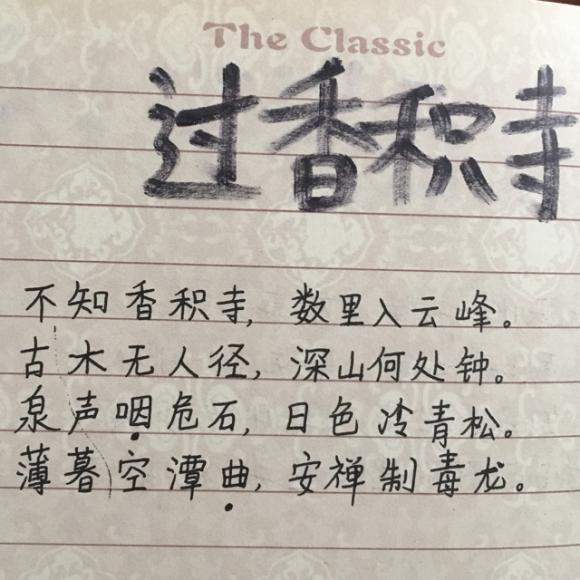 The Classic
过香积寺
不知香积寺,数里入云峰。
古木无人径,深山何处钟。
泉声咽危石,日色冷青松。
薄暮空潭曲,安禅制毒龙。